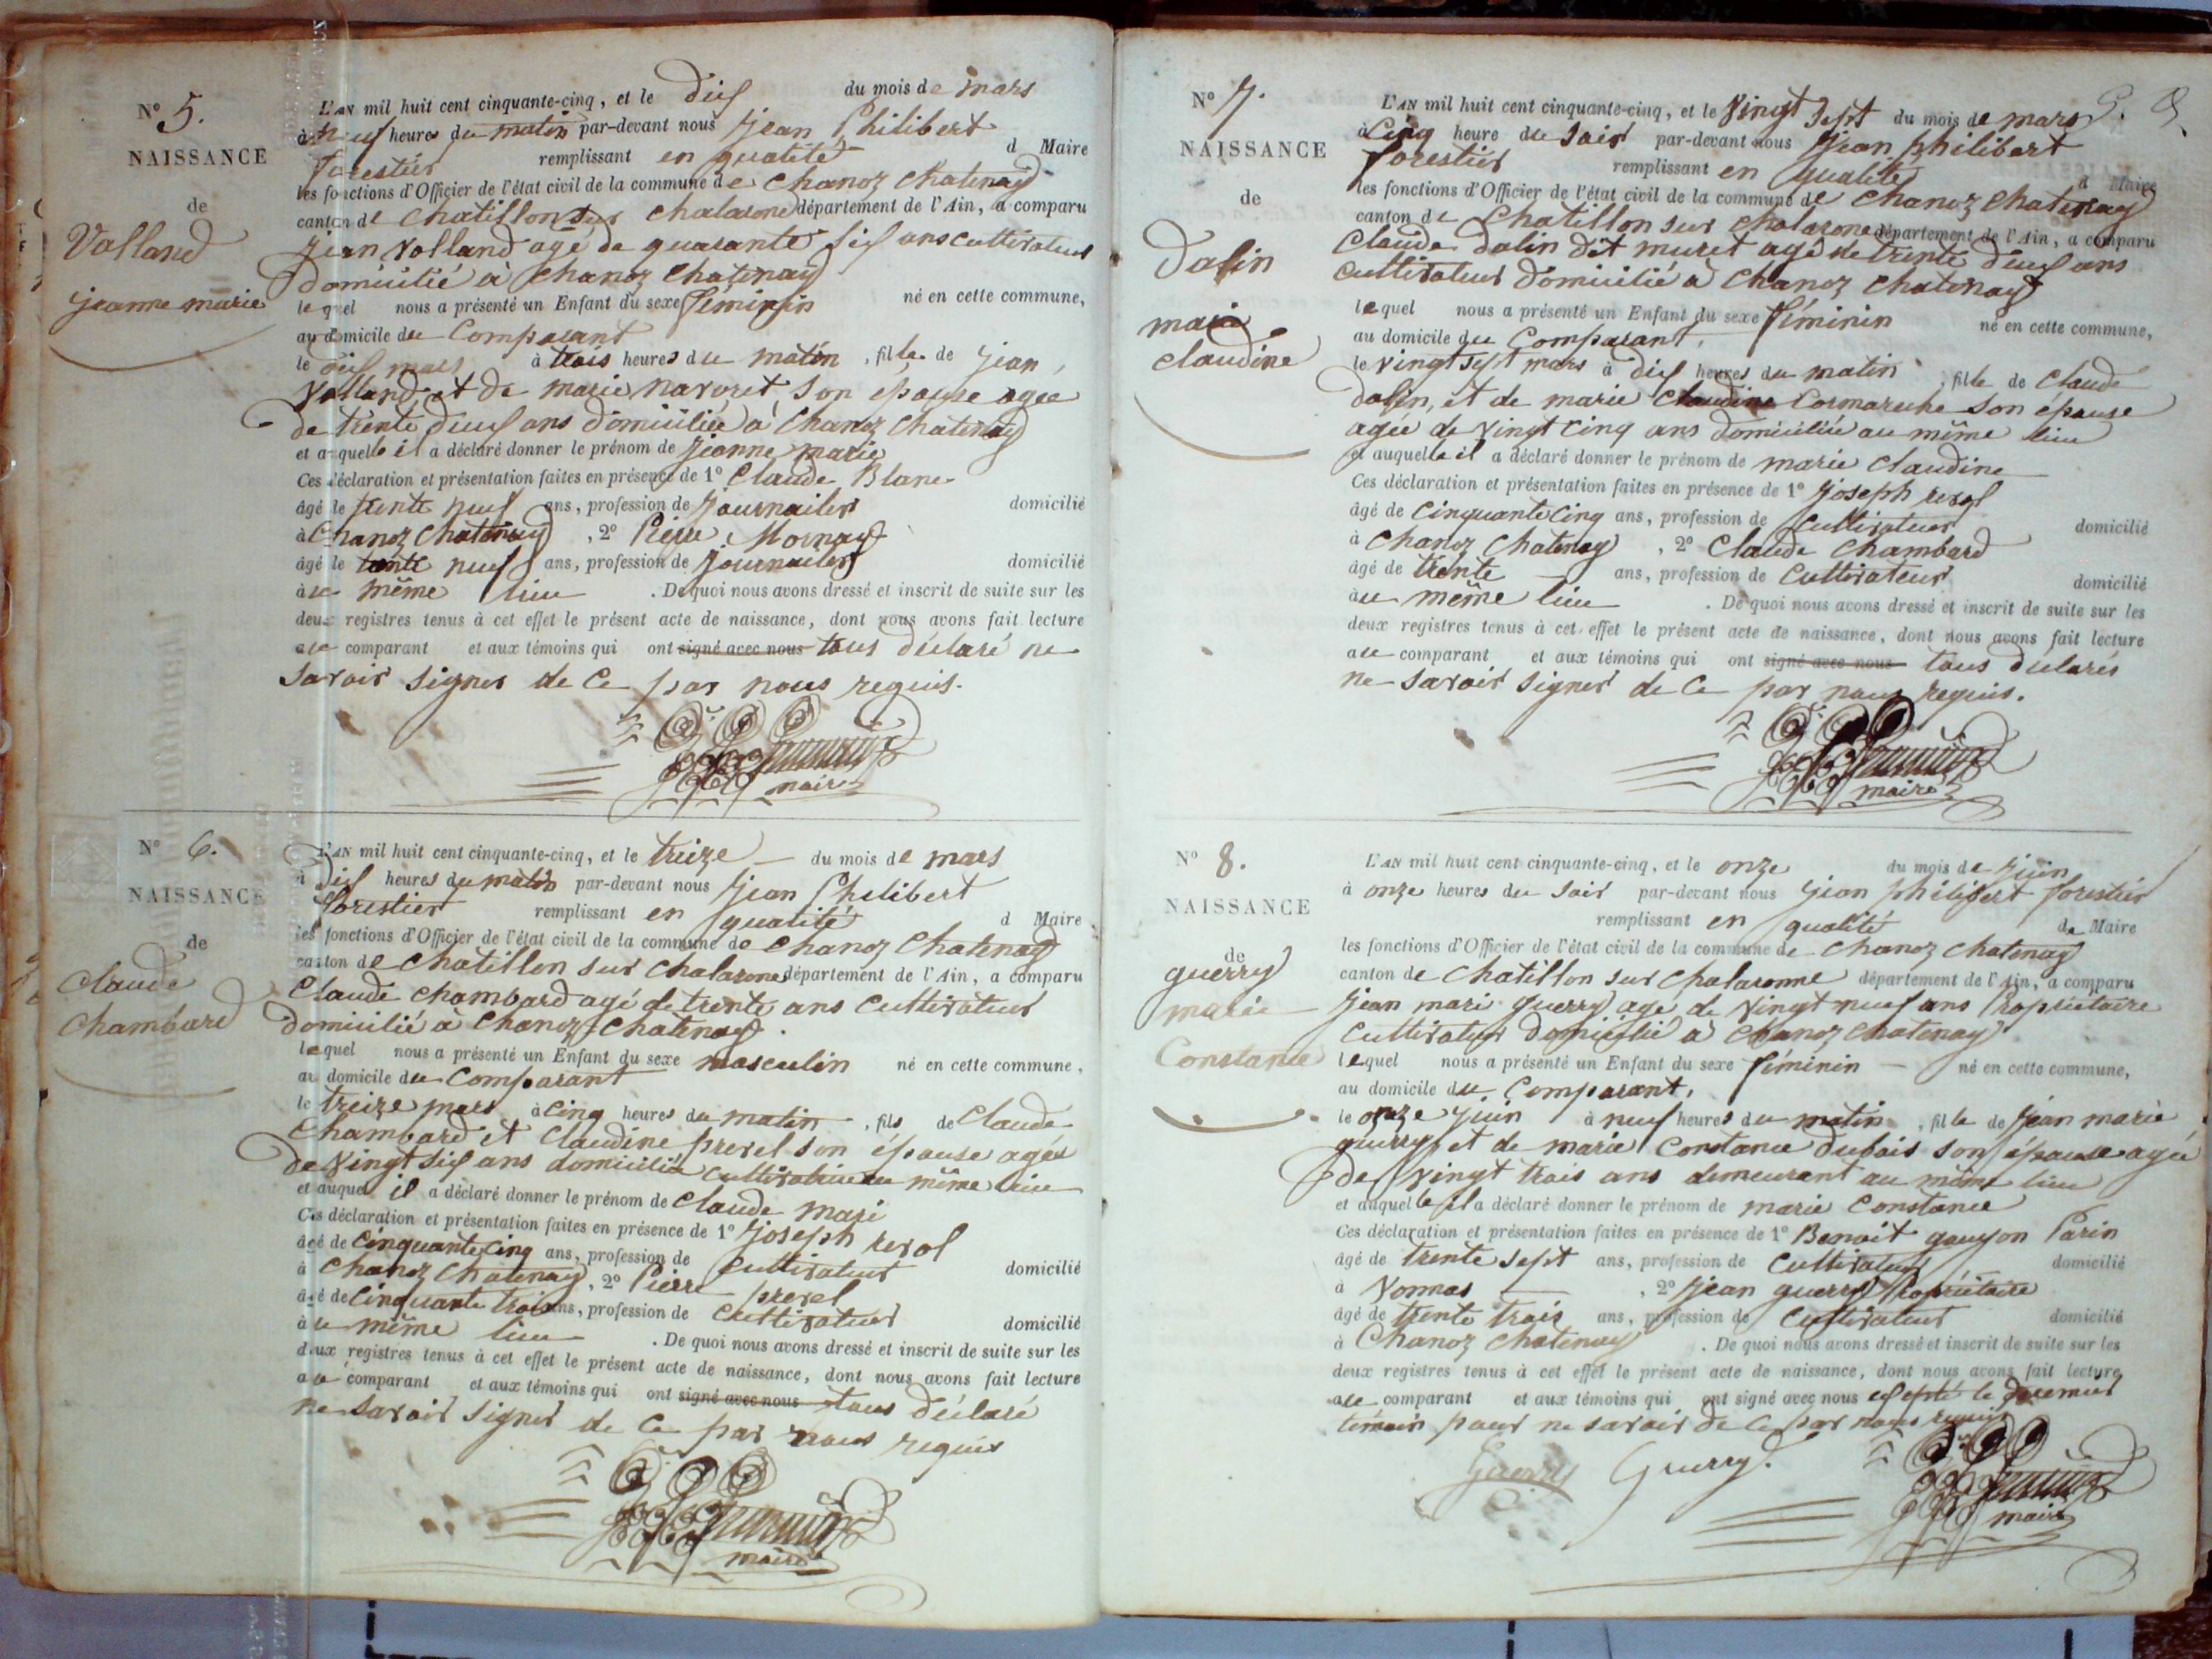 N° 5.
NAISSANCE
de
Volland
jeanne marie
L'AN mil huit cent cinquante-cinq, et le dix du mois de mars
à neuf heures du matin par-devant nous jean Philibert
forestier remplissant en qualité d Maire
les fonctions d'Officier de l'état civil de la commune de Chanoz Chatenay
canton de Chatillon sur Chalarone département de l'Ain, a comparu
jean Volland agé de quarante six ans cultivateur
domicilié à Chanoz Chatenay
lequel nous a présenté un Enfant du sexe féminin né en cette commune,
au domicile du Comparant
le dix mars à trois heures du matin, fille de jean
Volland et de marie navoret son épouse agée
de trente deux ans domiciliée à Chanoz Chatenay
et auquelle il a déclaré donner le prénom de jeanne marie
Ces déclaration et présentation faites en présence de 1° Claude Blanc
âgé de trente neuf ans, profession de journailier domicilié
à Chanoz Chatenay, 2° Pierre Mornay
âgé de trente neuf ans, profession de journailier domicilié
au même lieu. De quoi nous avons dressé et inscrit de suite sur les
deux registres tenus à cet effet le présent acte de naissance, dont nous avons fait lecture
au comparant et aux témoins qui ont signé avec nous tous déclaré ne
savoir signer de ce par nous requis.
maire
N° 6.
NAISSANCE
de
Claude
Chambard
L'AN mil huit cent cinquante-cinq, et le treize du mois de mars
à dix heures du matin par-devant nous jean Philibert
forestier remplissant en qualité d Maire
les fonctions d'Officier de l'état civil de la commune de Chanoz Chatenay
canton de Chatillon sur Chalarone département de l'Ain, a comparu
Claude Chambard agé de trente ans cultivateur
domicilié à Chanoz Chatenay.
lequel nous a présenté un Enfant du sexe masculin né en cette commune,
au domicile du Comparant
le treize mars à cinq heures du matin, fils de Claude
Chambard et Claudine prevel son épouse agée
de vingt six ans domiciliée cultivatrice au même lieu
et auquel il a déclaré donner le prénom de Claude mari
Ces déclaration et présentation faites en présence de 1° joseph revol
âgé de cinquante cinq ans, profession de cultivateur domicilié
à Chanoz Chatenay, 2° Pierre prevel
âgé de cinquante trois ans, profession de cultivateur domicilié
au même lieu. De quoi nous avons dressé et inscrit de suite sur les
deux registres tenus à cet effet le présent acte de naissance, dont nous avons fait lecture
au comparant et aux témoins qui ont signé avec nous tous déclaré
ne savoir signer de ce par nous requis
maire
N° 7.
NAISSANCE
de
Dalin
marie
claudine
L'AN mil huit cent cinquante-cinq, et le vingt sept du mois de mars
à cinq heure du soir par-devant nous jean philibert
forestier remplissant en qualité d Maire
les fonctions d'Officier de l'état civil de la commune de Chanoz Chatenay
canton de Chatillon sur Chalarone département de l'Ain, a comparu
Claude Dalin dit muret agé de trente deux ans
cultivateur domicilié à Chanoz Chatenay
lequel nous a présenté un Enfant du sexe féminin né en cette commune,
au domicile du Comparant,
le vingt sept mars à dix heures du matin, fille de Claude
dalin, et de marie Claudine Cormareche son épouse
agée de vingt cinq ans domiciliée au même lieu
et auquelle il a déclaré donner le prénom de marie Claudine
Ces déclaration et présentation faites en présence de 1° joseph revol
âgé de cinquante cinq ans, profession de cultivateur domicilié
à Chanoz Chatenay, 2° Claude Chambard
âgé de trente ans, profession de cultivateur domicilié
au même lieu. De quoi nous avons dressé et inscrit de suite sur les
deux registres tenus à cet effet le présent acte de naissance, dont nous avons fait lecture
au comparant et aux témoins qui ont signé avec nous tous déclarés
ne savoir signer de ce par nous requis.
maire
N° 8.
NAISSANCE
de
guerry
marie
Constance
L'AN mil huit cent cinquante-cinq, et le onze du mois de juin
à onze heures du soir par-devant nous jean philibert forestier
remplissant en qualité de Maire
les fonctions d'Officier de l'état civil de la commune de Chanoz Chatenay
canton de Chatillon sur Chalaronne département de l'Ain, a comparu
jean mari guerry agé de vingt neuf ans Propriétaire
cultivateur domicilié à Chanoz Chatenay
lequel nous a présenté un Enfant du sexe féminin né en cette commune,
au domicile du Comparant,
le onze juin à neuf heures du matin, fille de jean marie
guerry et de marie Constance dubois son épouse agée
de vingt trois ans demeurant au même lieu
et auquelle il a déclaré donner le prénom de marie Constance
Ces déclaration et présentation faites en présence de 1° Benoit gouyon Parin
âgé de trente sept ans, profession de cultivateur domicilié
à Vonnas, 2° jean guerry Propriétaire
âgé de trente trois ans, profession de cultivateur domicilié
à Chanoz Chatenay. De quoi nous avons dressé et inscrit de suite sur les
deux registres tenus à cet effet le présent acte de naissance, dont nous avons fait lecture
au comparant et aux témoins qui ont signé avec nous excepté le premier
témoin pour ne savoir de ce par nous requis
Guerry Guerry.
maire